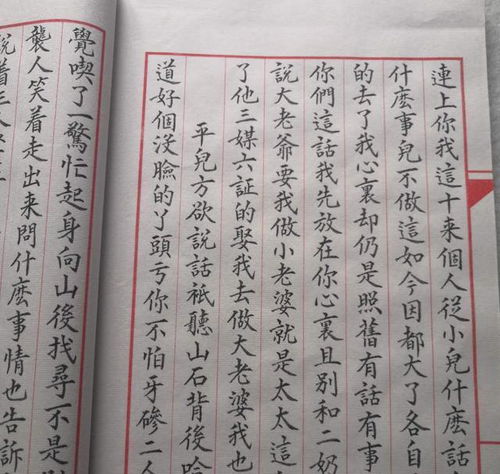 連上你我這十来個人從小兒什麽話
什麽事兒不做這如今因都大了各自
的去了我心裏却仍是照舊有話有事
你們這話我先放在你心裏且别和二奶
說大老爺要我做小老婆就是太太這
了他三媒六証的娶我去做大老婆我也
平兒方欲說話祇聽山石背後哈
道好個没臉的丫頭亏你不怕牙磣二人
覺喫了一驚忙起身向山後找尋不是
襲人笑着走出来問什麽事情也告訴
說着